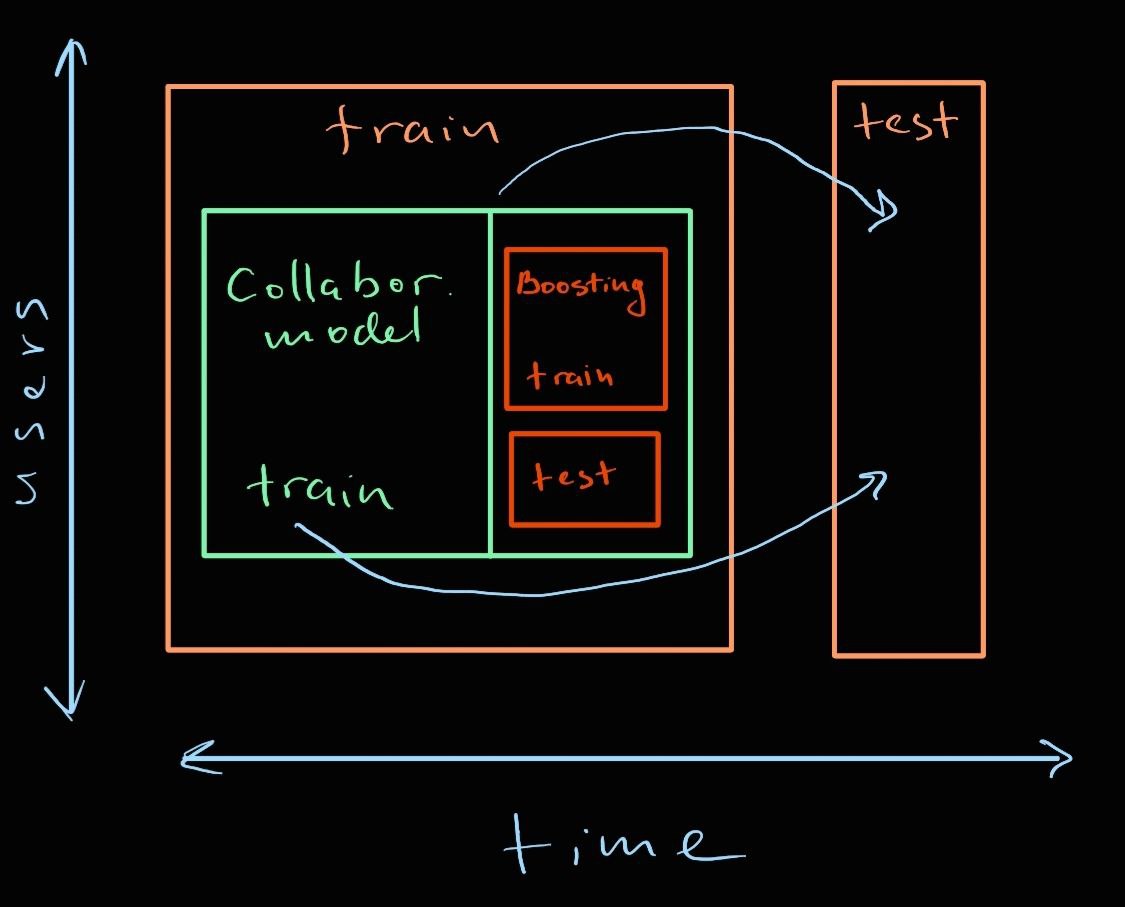 train
test
Collabor.
model
train
Boosting
train
test
users
time